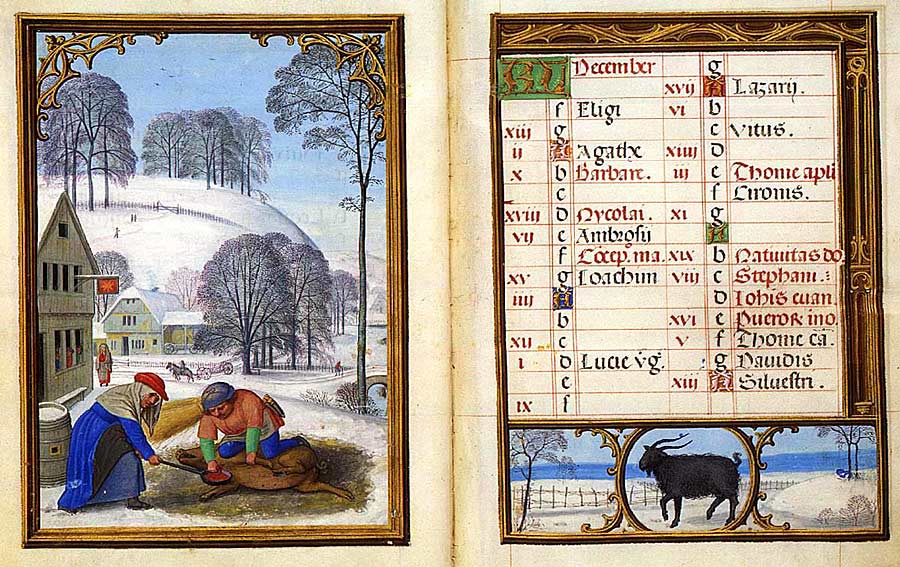 KL December
f Eligi
xiii g
ii A Agathe
x b Barbare.
c
xviii d Nycolai.
vii e Ambrosij
f Cōcep. ma.
xv g Ioachim
iiii A
b
xii c
i d Lucie v̄g.
e
ix f
g
xvii A Lazarij.
vi b
c Vitus.
xiiii d
iii e Thome apli
f Cironis.
xi g
A
xix b Natiuitas do.
viii c Stephani.
d Iohis euan.
xvi e Pueror ino.
v f Thome cā.
g Dauidis
xiii A Siluestri.